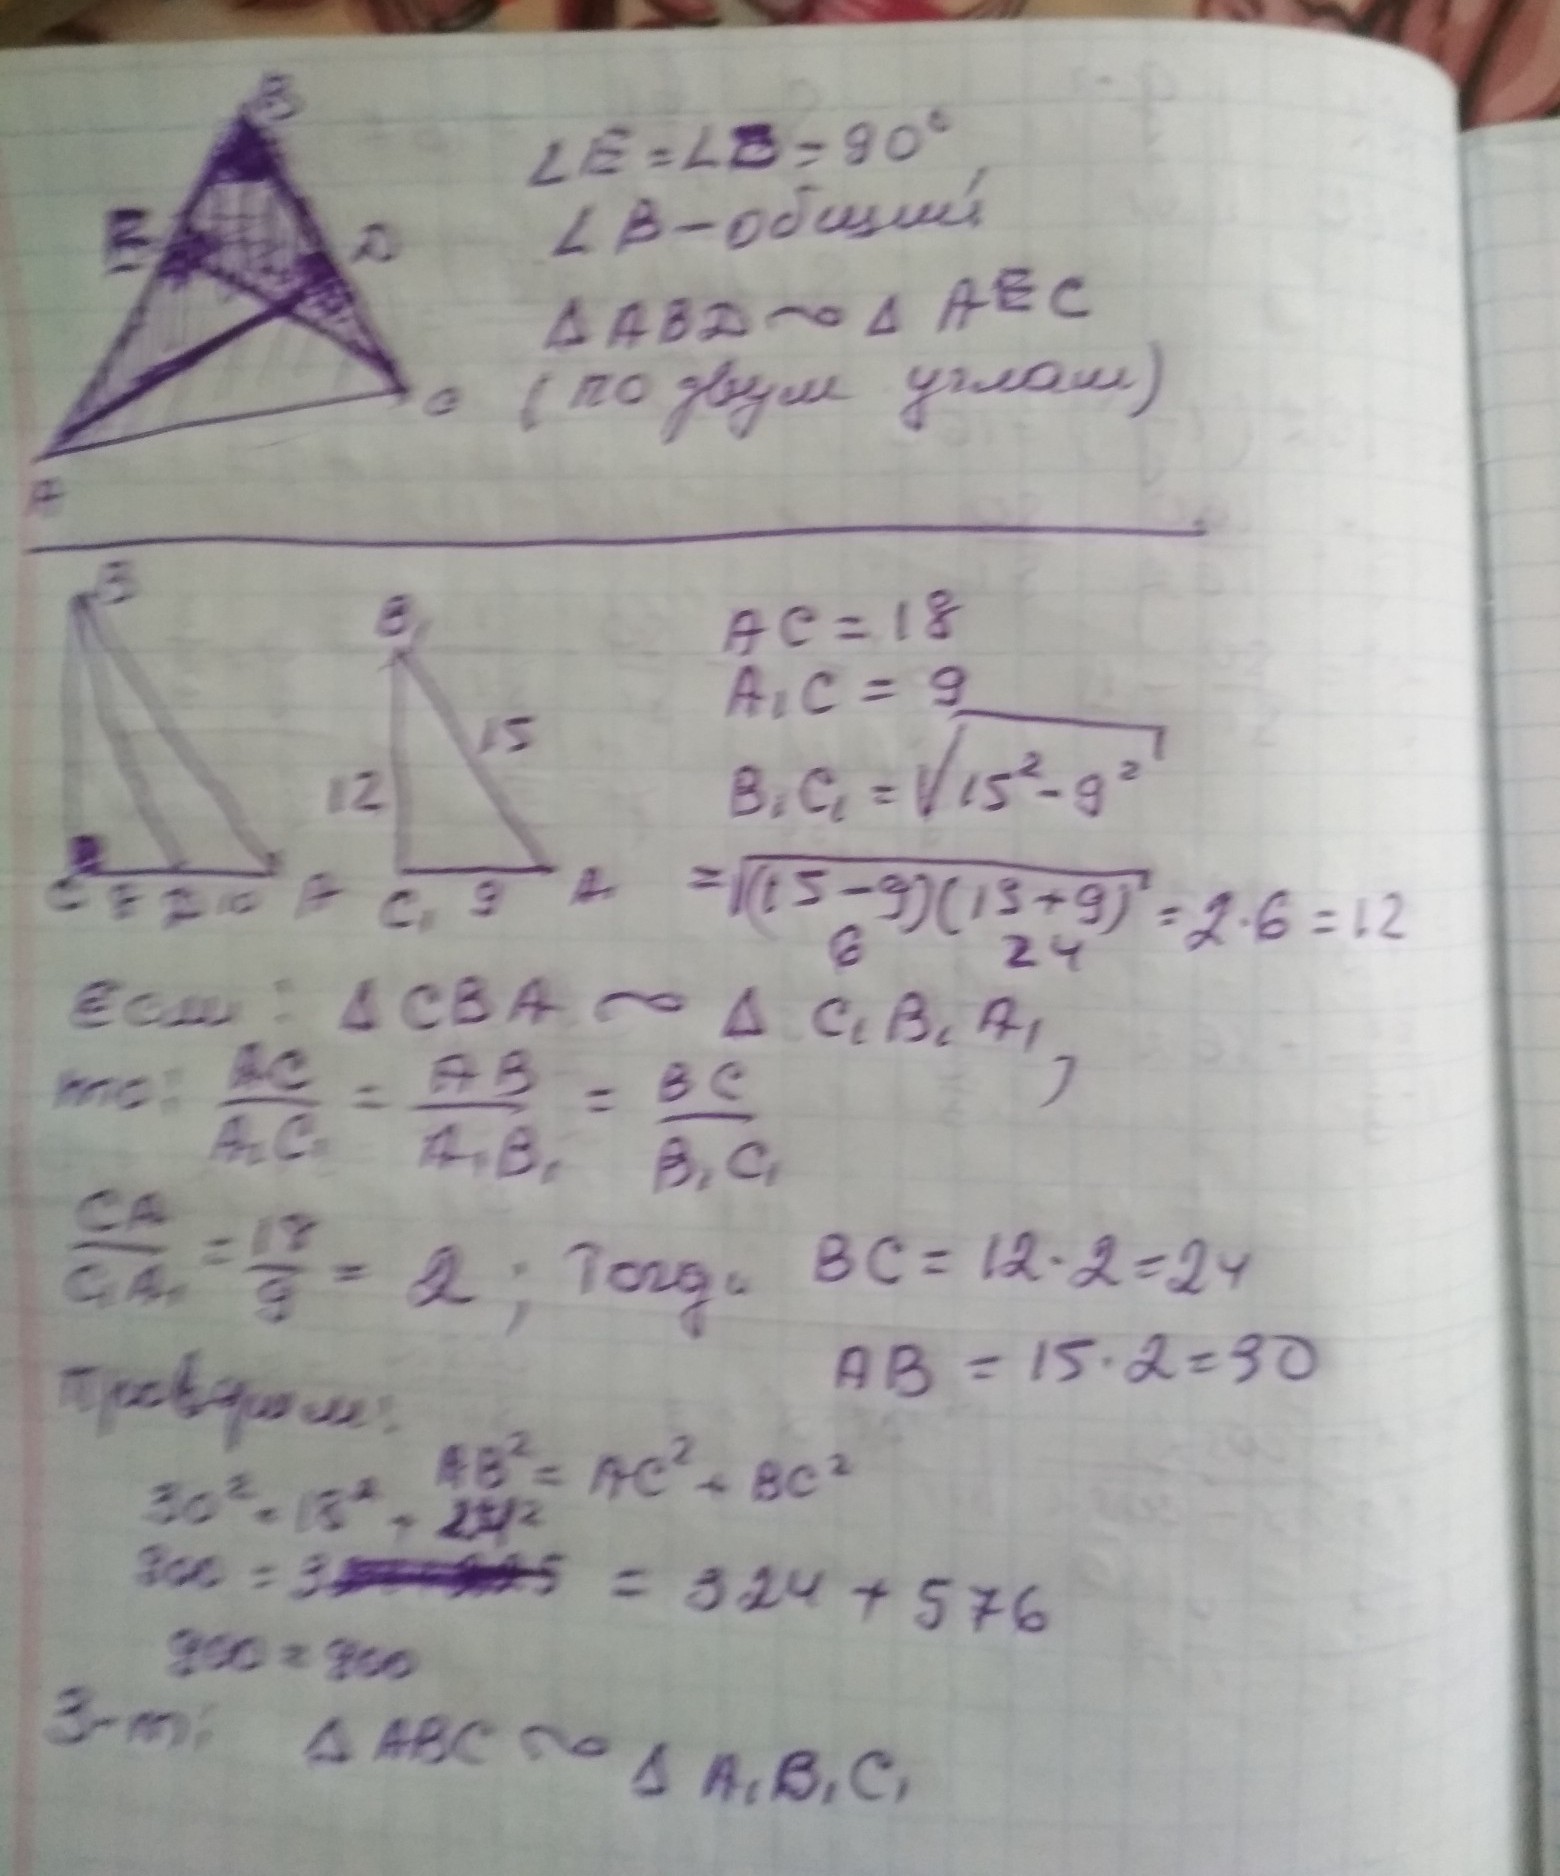 B
∠E = ∠B = 90°
∠B – общий
E D
△ABD ~ △AEC
(по двум углам)
C
A
B
B₁
AC = 18
A₁C = 9
15
12
B₁C₁ = √15² - 9²
C D 10 A
C₁ 9 A₁
= √(15-9)(15+9) = 2·6 = 12
6 24
Если: △CBA ~ △C₁B₁A₁,
то: AC/A₁C₁ = AB/A₁B₁ = BC/B₁C₁
CA/C₁A₁ = 18/9 = 2; Тогда BC = 12·2 = 24
AB = 15·2 = 30
Проверим:
AB² = AC² + BC²
30² = 18² + 24²
900 = = 324 + 576
900 = 900
З-т: △ABC ~ △A₁B₁C₁